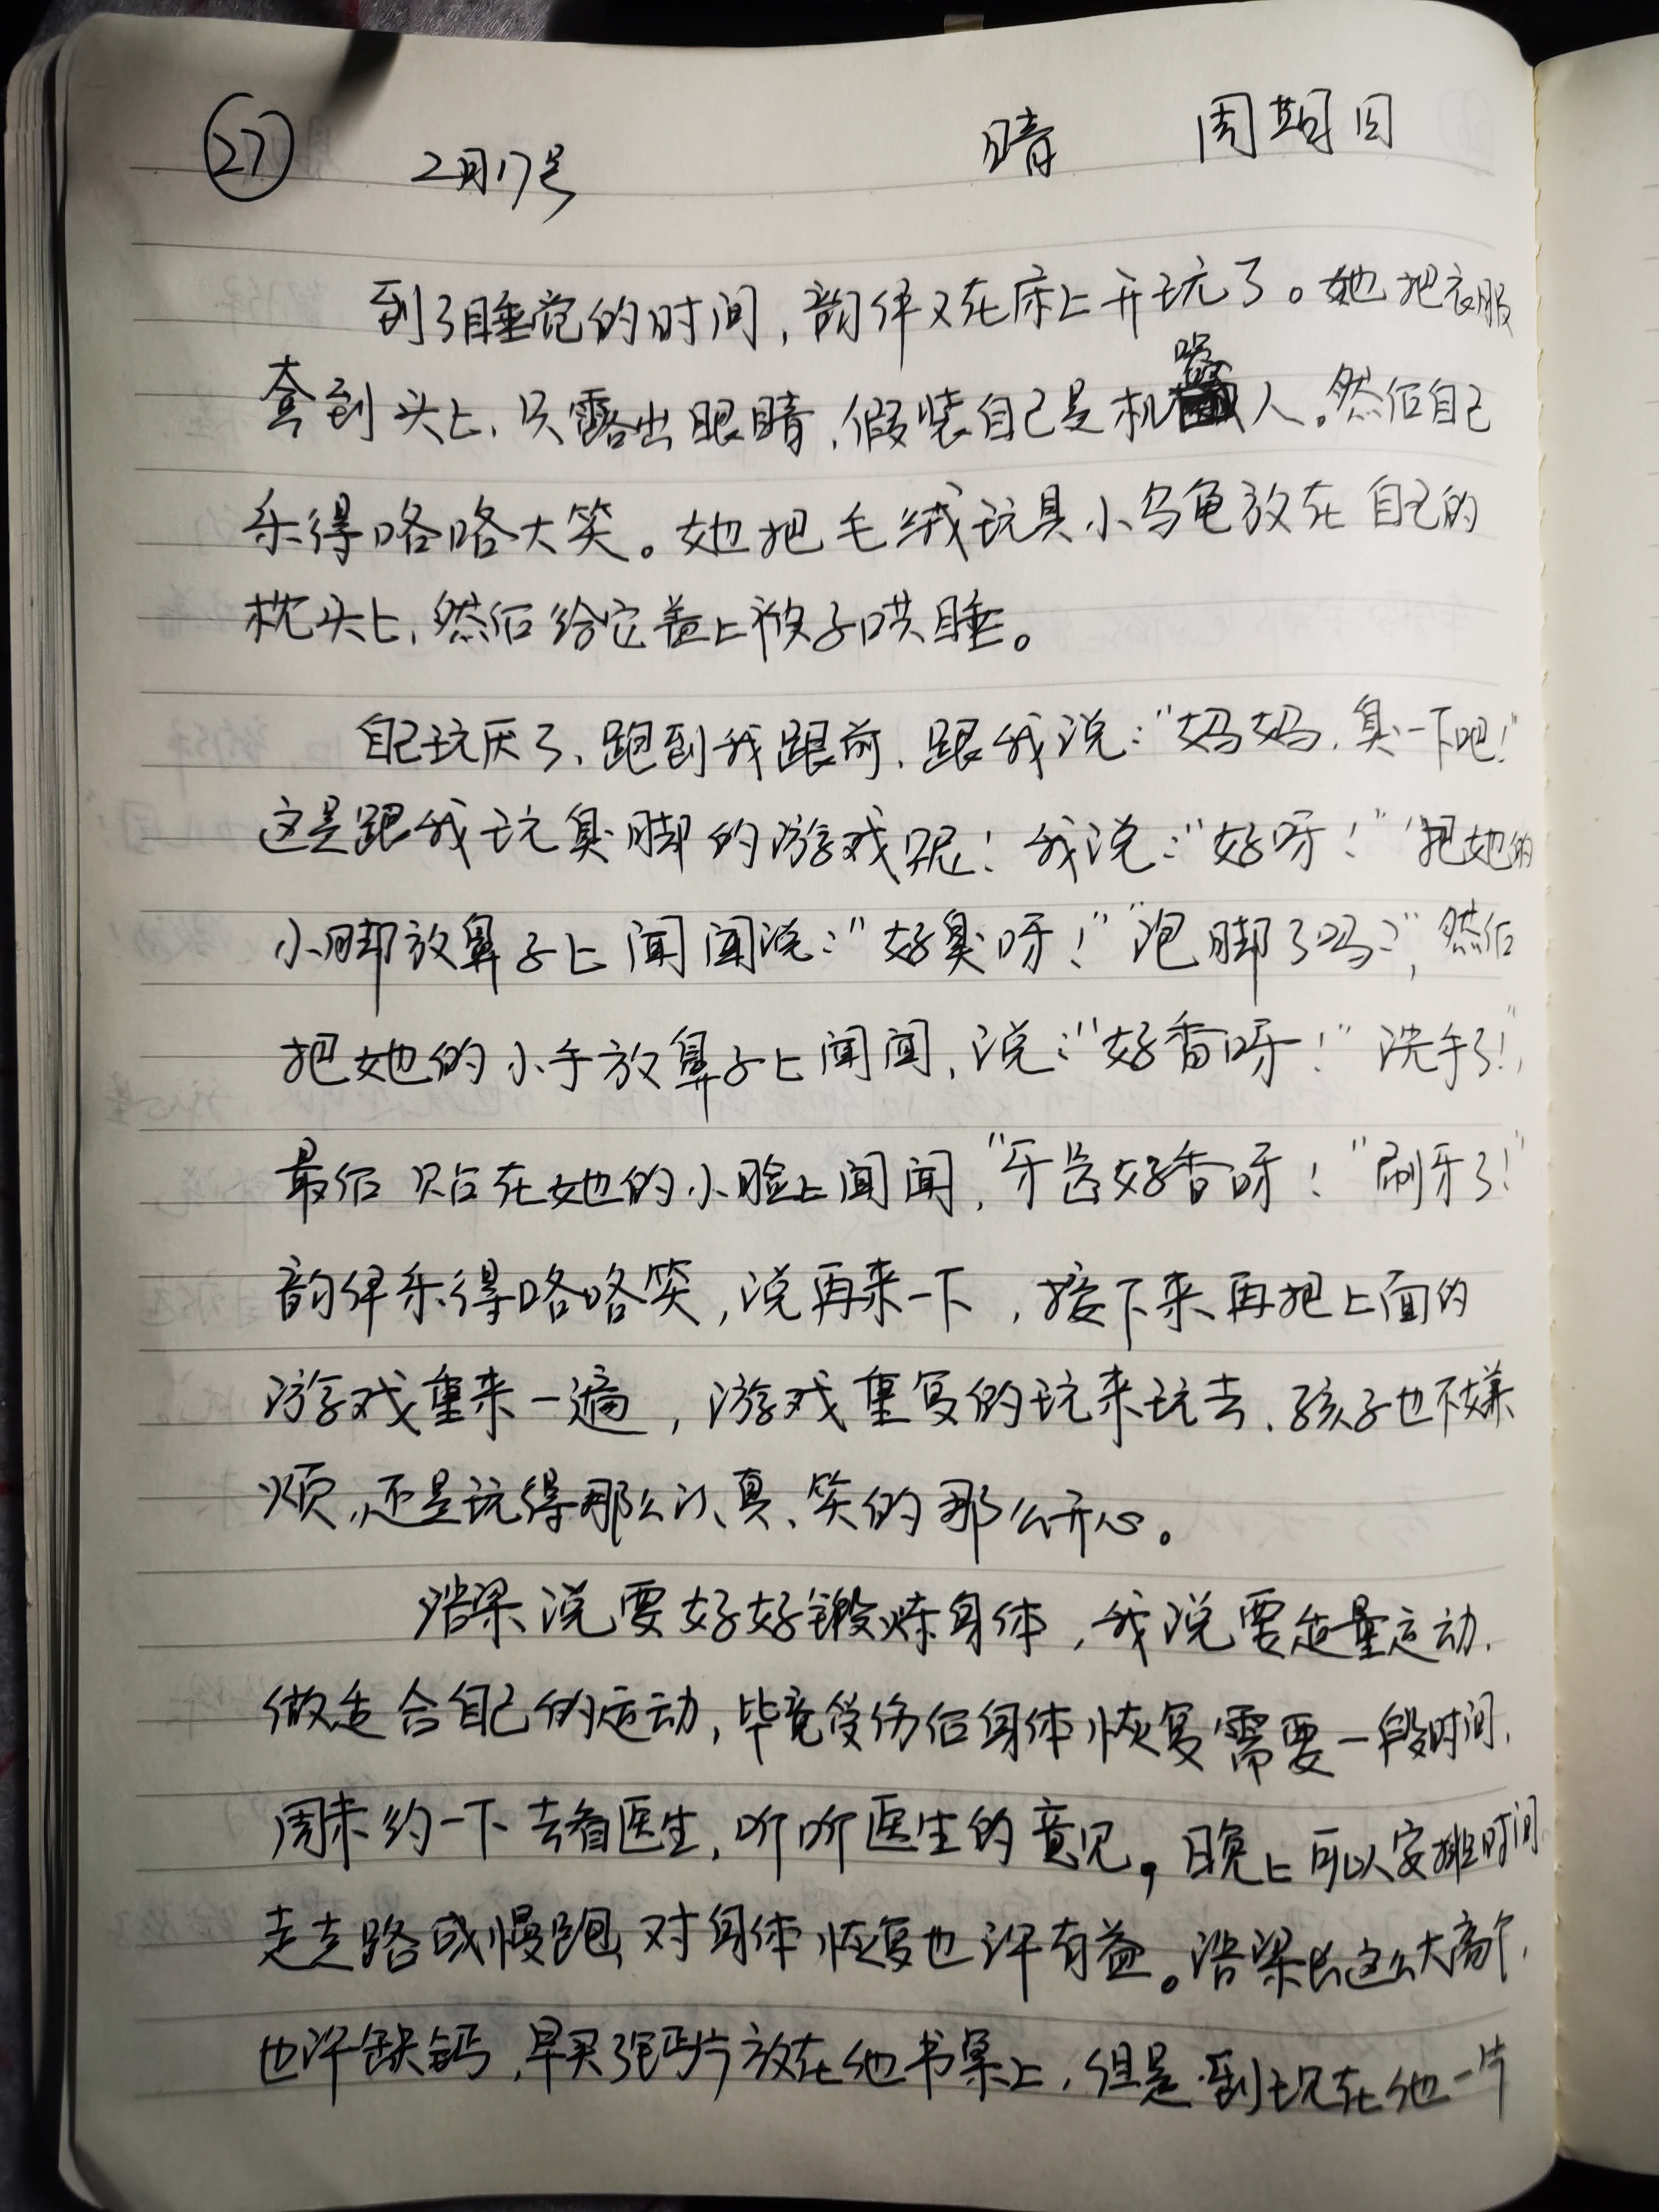 ㉗ 2月17号 晴 周期日
到了睡觉的时间,韵伊又在床上开玩了。她把衣服
套到头上,只露出眼睛,假装自己是机器人。然后自己
乐得咯咯大笑。她把毛绒玩具小乌龟放在自己的
枕头上,然后给它盖上被子哄睡。
自己玩厌了,跑到我跟前,跟我说:“妈妈,臭一下吧!”
这是跟我玩臭脚的游戏呢!我说:“好呀!”把她的
小脚放鼻子上闻闻说:“好臭呀!”“泡脚了吗?”,然后
把她的小手放鼻子上闻闻,说:“好香呀!”洗手了!”,
最后贴在她的小脸上闻闻,“牙齿好香呀!“刷牙了!”
韵伊乐得咯咯笑,说再来一下,接下来再把上面的
游戏重来一遍,游戏重复的玩来玩去,孩子也不嫌
烦,还是玩得那么认真、笑的那么开心。
浩梁说要好好锻炼身体,我说要适量运动,
做适合自己的运动,毕竟受伤后身体恢复需要一段时间,
周末约一下去看医生,听听医生的意见,晚上可以安排时间
走走路或慢跑,对身体恢复也许有益。浩梁长这么大高个,
也许缺钙,早买了钙片放在他书桌上,但是到现在他一片